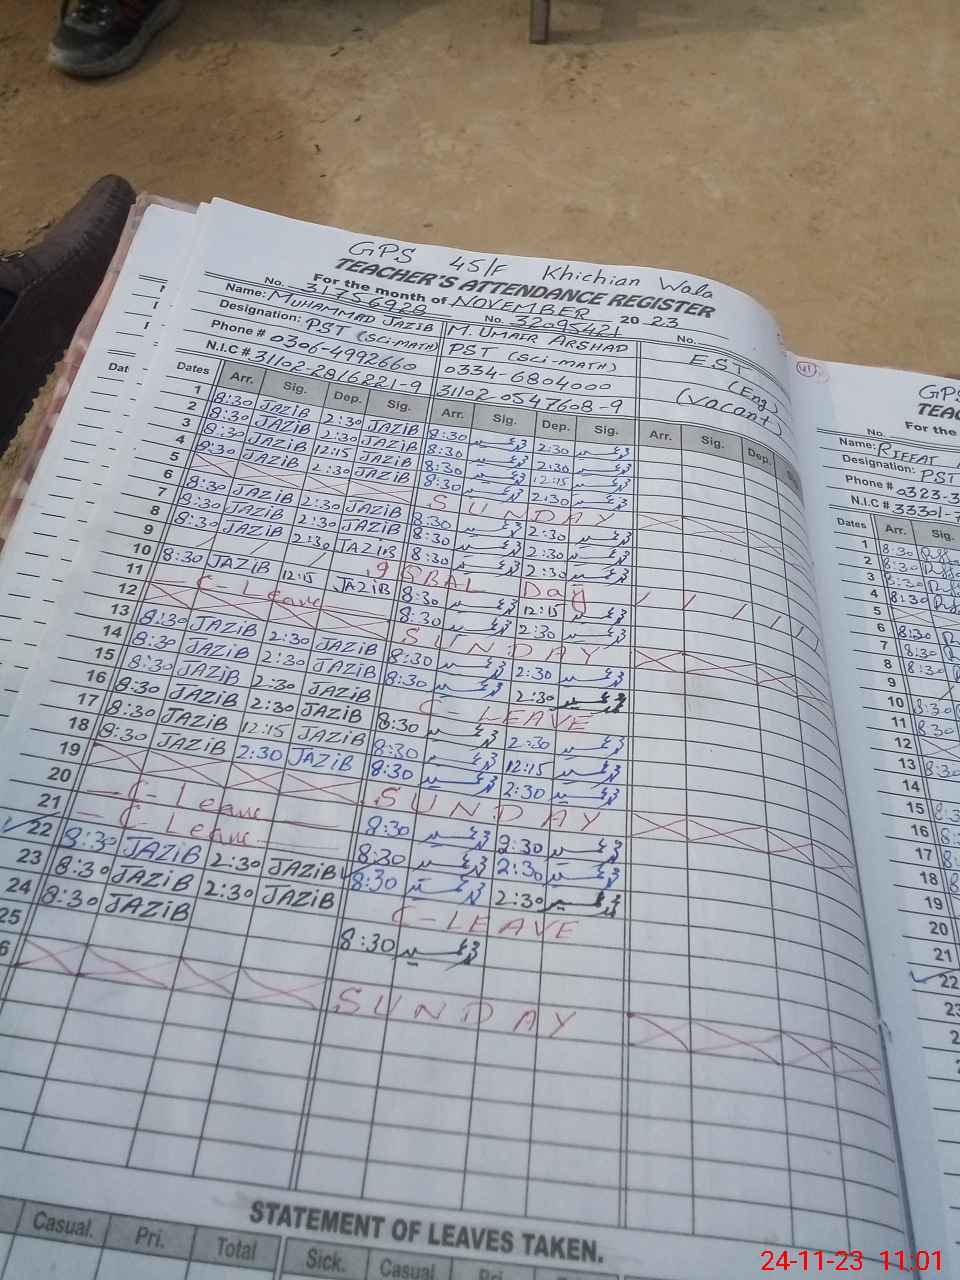 GPS 45/F Khichian Wala
TEACHER'S ATTENDANCE REGISTER
For the month of NOVEMBER 2023
No. 31756928 No. 32095421 No.
Name: MUHAMMAD JAZIB M. UMAER ARSHAD E.S.T
Designation: PST (SCI-MATH) PST (SCI-MATH) (Eng)
Phone # 0306-4992660 0334-6804000 (Vacant)
N.I.C # 31102-2816221-9 31102-0547608-9
Dates Arr. Sig. Dep. Sig. Arr. Sig. Dep. Sig. Arr. Sig. Dep.
1 8:30 JAZIB 2:30 JAZIB 8:30 2:30
2 8:30 JAZIB 2:30 JAZIB 8:30 2:30
3 8:30 JAZIB 12:15 JAZIB 8:30 12:15
4 8:30 JAZIB 2:30 JAZIB 8:30 2:30
5 SUNDAY
6 8:30 JAZIB 2:30 JAZIB 8:30 2:30
7 8:30 JAZIB 2:30 JAZIB 8:30 2:30
8 8:30 JAZIB 2:30 JAZIB 8:30 2:30
9 Day
10 8:30 JAZIB 12:15 JAZIB 8:30 12:15
11 C-Leave 8:30 2:30
12 SUNDAY
13 8:30 JAZIB 2:30 JAZIB 8:30 2:30
14 8:30 JAZIB 2:30 JAZIB 8:30 2:30
15 8:30 JAZIB 2:30 JAZIB C-LEAVE
16 8:30 JAZIB 2:30 JAZIB 8:30 2:30
17 8:30 JAZIB 12:15 JAZIB 8:30 12:15
18 8:30 JAZIB 2:30 JAZIB 8:30 2:30
19 SUNDAY
20 C-Leave 8:30 2:30
21 C-Leave 8:30 2:30
22 8:30 JAZIB 2:30 JAZIB 8:30 2:30
23 8:30 JAZIB 2:30 JAZIB C-LEAVE
24 8:30 JAZIB 8:30
25
6 SUNDAY
STATEMENT OF LEAVES TAKEN.
Casual. Pri. Total Sick. Casual Pri
GPS
TEAC
For the
No.
Name: RIFFAT
Designation: PST
Phone # 0323-3
N.I.C # 33301-7
Dates Arr. Sig.
1 8:30
2 8:30
3 8:30
4 8:30
5
6 8:30
7 8:30
8 8:30
9
10 8:30
11 8:30
12
13 8:30
14
15
16
17
18
19
20
21
22
23
24-11-23 11:01